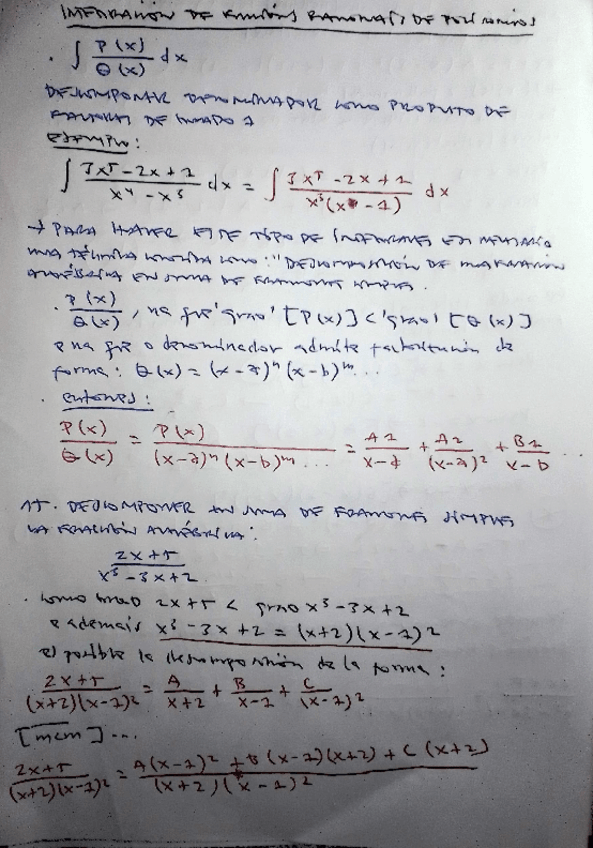 INTEGRACIÓN DE FUNCIONES RACIONALES DE POLINOMIOS
. ∫ P(x)/Q(x) dx
DESCOMPONER DENOMINADOR COMO PRODUTO DE
FACTORES DE GRADO 1
EJEMPLO:
∫ (3x⁵ - 2x + 1)/(x⁴ - x³) dx = ∫ (3x⁵ - 2x + 1)/(x³(x - 1)) dx
→ PARA HACER ESTE TIPO DE INTEGRALES ES NECESARIO
UNA TÉCNICA CONOCIDA COMO: "DESCOMPOSICIÓN DE UNA FRACCIÓN
ALGÉBRICA EN SUMA DE FRACCIONES SIMPLES.
. P(x)/Q(x), na que 'grao' [P(x)] < 'grao' [Q(x)]
e na que o denominador admite factorización de
forma: Q(x) = (x - a)ⁿ (x - b)ᵐ ...
. entonces:
P(x)/Q(x) = P(x)/((x - a)ⁿ (x - b)ᵐ ...) = A1/(x - a) + A2/(x - a)² + B1/(x - b) ...
15. DESCOMPONER EN SUMA DE FRACCIONES SIMPLES
LA FRACCIÓN ALGÉBRICA:
(2x + 5)/(x³ - 3x + 2)
. como grao 2x + 5 < grao x³ - 3x + 2
e ademais x³ - 3x + 2 = (x + 2)(x - 1)²
es posible la descomposición de la forma:
(2x + 5)/((x + 2)(x - 1)²) = A/(x + 2) + B/(x - 1) + C/(x - 1)²
[mcm] ...
(2x + 5)/((x + 2)(x - 1)²) = (A(x - 1)² + B(x - 1)(x + 2) + C(x + 2))/((x + 2)(x - 1)²)